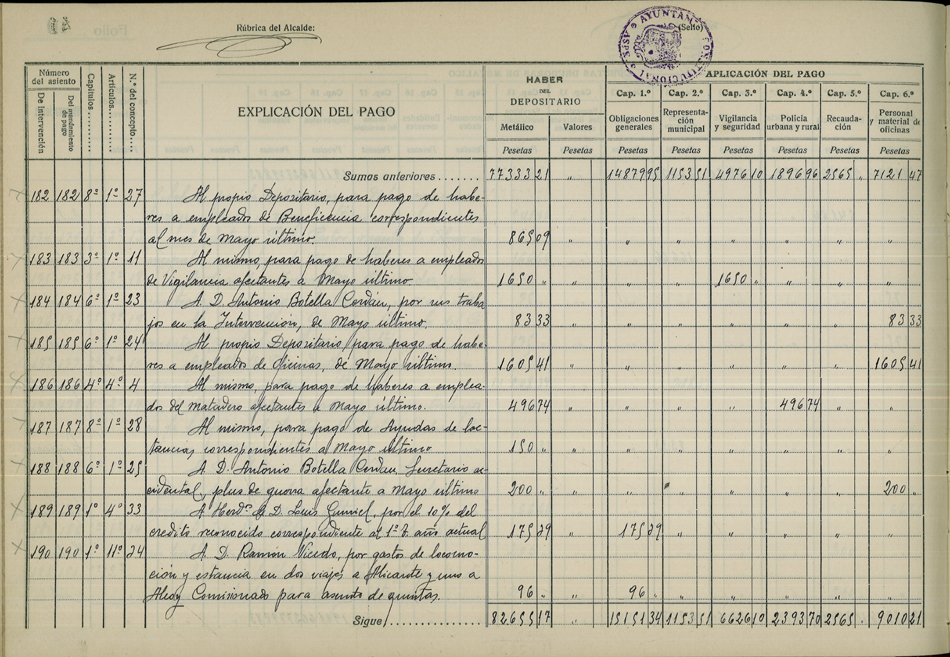 Rúbrica del Alcalde:
AYUNTAM CONSTITUCIONAL ASPE
(Sello)
Número del asiento
De Intervención
Del mandamiento de pago
Capítulos
Artículos
N.º del concepto
EXPLICACIÓN DEL PAGO
HABER DEL DEPOSITARIO
Metálico
Valores
Pesetas Pesetas
APLICACIÓN DEL PAGO
Cap. 1.º Cap. 2.º Cap. 3.º Cap. 4.º Cap. 5.º Cap. 6.º
Obligaciones generales
Representación municipal
Vigilancia y seguridad
Policía urbana y rural
Recaudación
Personal y material de oficinas
Pesetas Pesetas Pesetas Pesetas Pesetas Pesetas
Sumas anteriores 77333 21 " 14879 95 1153 51 4976 10 18969 6 2565 " 7121 47
182 182 8º 1º 27 Al propio Depositario, para pago de habe-
res a empleados de Beneficencia correspondientes
al mes de Mayo último. 865 09 " " " " " " "
183 183 3º 1º 11 Al mismo, para pago de haberes a empleados
de Vigilancia afectantes a Mayo último 1650 " " " " 1650 " " " "
184 184 6º 1º 23 A D. Antonio Botella Cerdán, por sus traba
jos en la Intervención, de Mayo último. 83 33 " " " " " " 83 33
185 185 6º 1º 24 Al propio Depositario para pago de habe-
res a empleados de Oficinas, de Mayo último. 1605 41 " " " " " " 1605 41
186 186 4º 4º 4 Al mismo, para pago de haberes a emplea-
dos del Matadero afectantes a Mayo último. 496 74 " " " " 496 74 " "
187 187 8º 1º 28 Al mismo, para pago de Ayudas de lac-
tancias correspondientes a Mayo último 150 " " " " " " " "
188 188 6º 1º 25 A D. Antonio Botella Cerdán Secretario ac-
cidental, plus de guerra afectante a Mayo último 200 " " " " " " " 200 "
189 189 1º 4º 33 A Herdº de D. Luis, por el 10% del
credito reconocido correspondiente al 1º T. año actual 175 29 " 175 29 " " " " "
190 190 1º 11º 24 A D. Ramón Vicedo, por gastos de locomo-
ción y estancia en dos viajes a Alicante y uno a
Alcoy Comisionado para asunto de quintas. 96 " " 96 " " " " " "
Sigue 82655 17 " 15151 34 1153 51 6626 10 2393 70 2565 " 9010 21